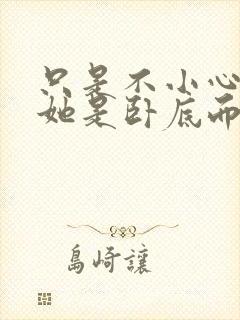 只是不小心
她是卧底而
島崎讓